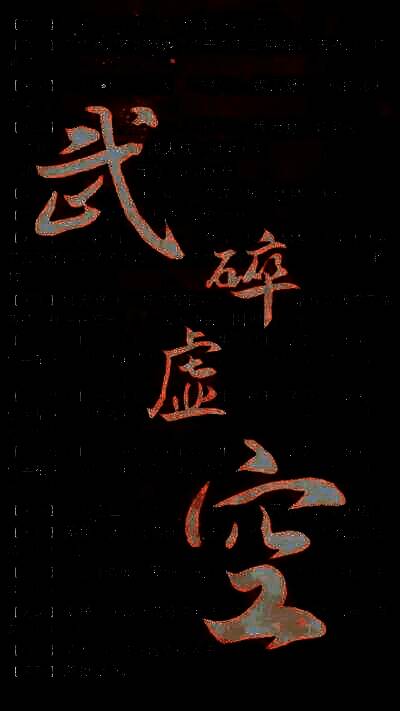 武
碎
虚
空